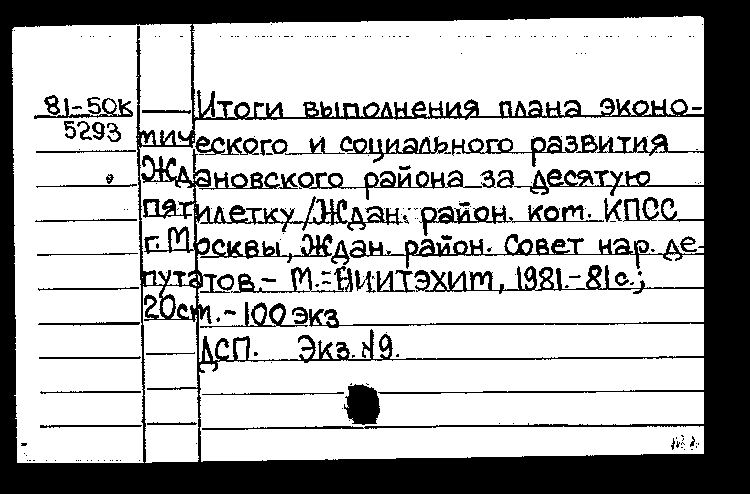 81-50к
5293
Итоги выполнения плана эконо-
мического и социального развития
Ждановского района за десятую
пятилетку/Ждан. район. ком. КПСС
г. Москвы, Ждан. район. Совет нар. де-
путатов.- М.: НИИТЭХИМ, 1981.-81с.;
20см.-100 экз
ДСП. Экз. №9.